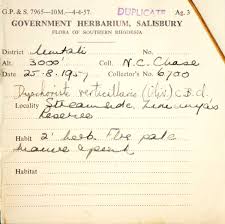 G.P. & S. 7965—10M.—4-4-57. DUPLICATE Ag. 3
GOVERNMENT HERBARIUM, SALISBURY
FLORA OF SOUTHERN RHODESIA
District Umtali
Alt. 3000' Coll. N.C. Chase
Date 25.8.1957 Collector's No. 6700
Dyschoriste verticillaris (Oliv.) C.B.Cl.
Locality Streamside. Zimunya's
Reserve
Habit 2' herb. Flrs pale
mauve